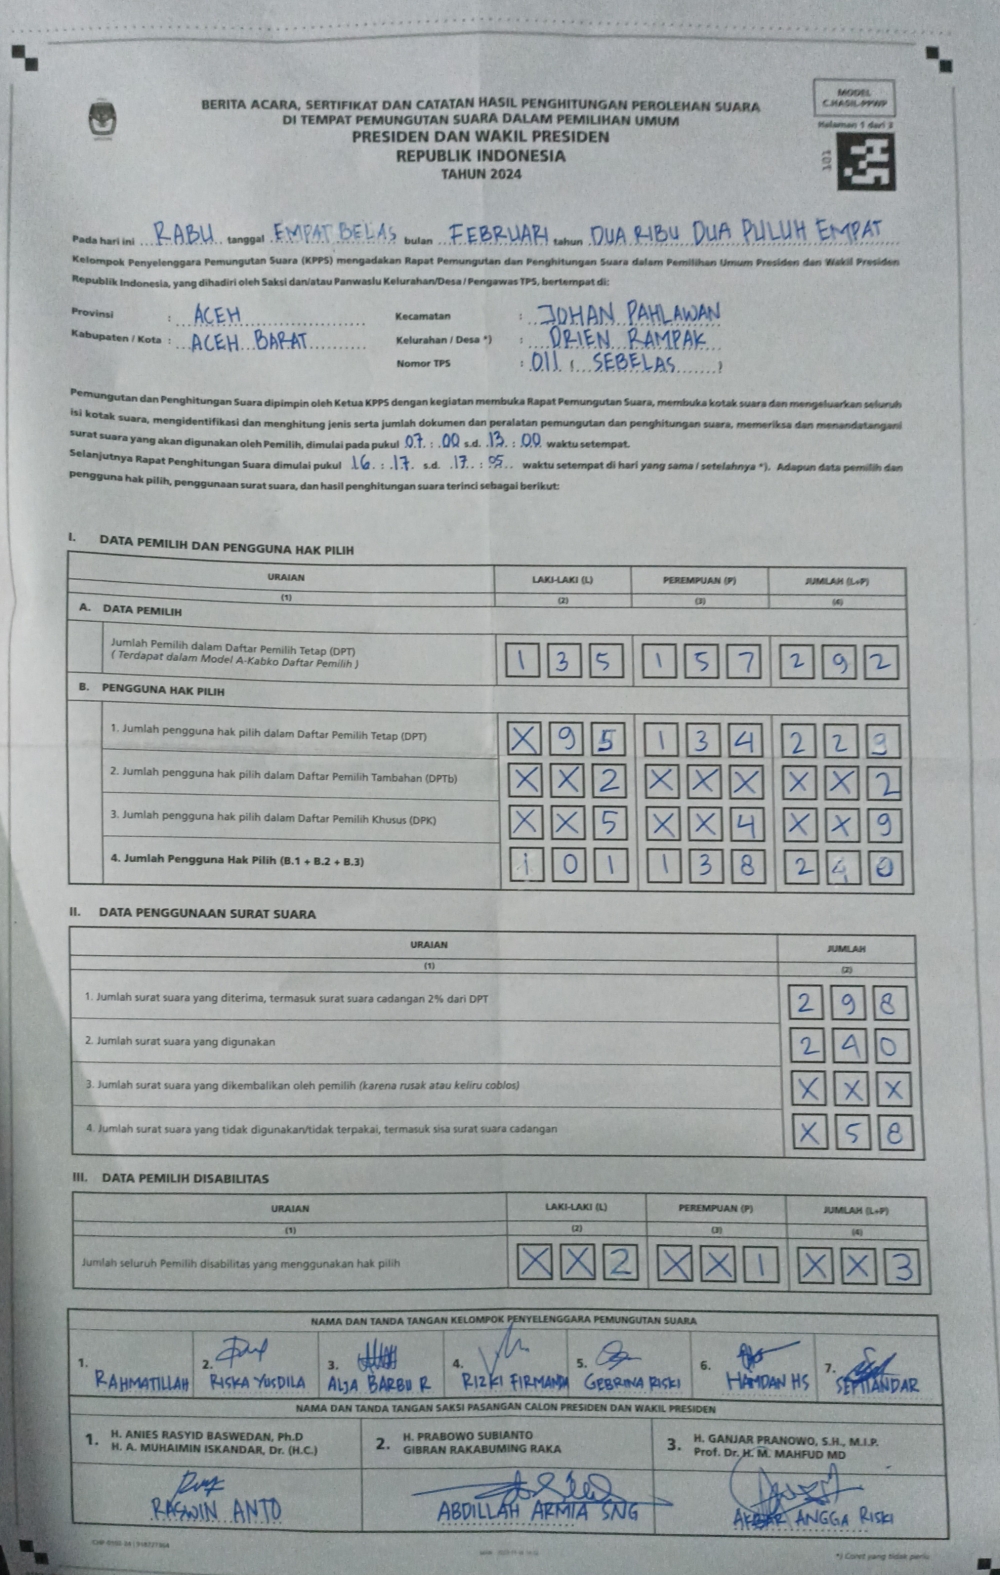 MODEL
C.HASIL-PPWP
Halaman 1 dari 3
101
BERITA ACARA, SERTIFIKAT DAN CATATAN HASIL PENGHITUNGAN PEROLEHAN SUARA
DI TEMPAT PEMUNGUTAN SUARA DALAM PEMILIHAN UMUM
PRESIDEN DAN WAKIL PRESIDEN
REPUBLIK INDONESIA
TAHUN 2024
Pada hari ini RABU tanggal EMPAT BELAS bulan FEBRUARI tahun DUA RIBU DUA PULUH EMPAT
Kelompok Penyelenggara Pemungutan Suara (KPPS) mengadakan Rapat Pemungutan dan Penghitungan Suara dalam Pemilihan Umum Presiden dan Wakil Presiden
Republik Indonesia, yang dihadiri oleh Saksi dan/atau Panwaslu Kelurahan/Desa / Pengawas TPS, bertempat di:
Provinsi : ACEH Kecamatan : JOHAN PAHLAWAN
Kabupaten / Kota : ACEH BARAT Kelurahan / Desa *) : DRIEN RAMPAK
Nomor TPS : 011 ( SEBELAS )
Pemungutan dan Penghitungan Suara dipimpin oleh Ketua KPPS dengan kegiatan membuka Rapat Pemungutan Suara, membuka kotak suara dan mengeluarkan seluruh
isi kotak suara, mengidentifikasi dan menghitung jenis serta jumlah dokumen dan peralatan pemungutan dan penghitungan suara, memeriksa dan menandatangani
surat suara yang akan digunakan oleh Pemilih, dimulai pada pukul 07 : 00 s.d. 13 : 00 waktu setempat.
Selanjutnya Rapat Penghitungan Suara dimulai pukul 16 : 17 s.d. 17 : 05 waktu setempat di hari yang sama / setelahnya *). Adapun data pemilih dan
pengguna hak pilih, penggunaan surat suara, dan hasil penghitungan suara terinci sebagai berikut:
I. DATA PEMILIH DAN PENGGUNA HAK PILIH
URAIAN LAKI-LAKI (L) PEREMPUAN (P) JUMLAH (L+P)
(1) (2) (3) (4)
A. DATA PEMILIH
Jumlah Pemilih dalam Daftar Pemilih Tetap (DPT) 1 3 5 1 5 7 2 9 2
( Terdapat dalam Model A-Kabko Daftar Pemilih )
B. PENGGUNA HAK PILIH
1. Jumlah pengguna hak pilih dalam Daftar Pemilih Tetap (DPT) X 9 5 1 3 4 2 2 9
2. Jumlah pengguna hak pilih dalam Daftar Pemilih Tambahan (DPTb) X X 2 X X X X X 2
3. Jumlah pengguna hak pilih dalam Daftar Pemilih Khusus (DPK) X X 5 X X 4 X X 9
4. Jumlah Pengguna Hak Pilih (B.1 + B.2 + B.3) 1 0 1 1 3 8 2 4 0
II. DATA PENGGUNAAN SURAT SUARA
URAIAN JUMLAH
(1) (2)
1. Jumlah surat suara yang diterima, termasuk surat suara cadangan 2% dari DPT 2 9 8
2. Jumlah surat suara yang digunakan 2 4 0
3. Jumlah surat suara yang dikembalikan oleh pemilih (karena rusak atau keliru coblos) X X X
4. Jumlah surat suara yang tidak digunakan/tidak terpakai, termasuk sisa surat suara cadangan X 5 8
III. DATA PEMILIH DISABILITAS
URAIAN LAKI-LAKI (L) PEREMPUAN (P) JUMLAH (L+P)
(1) (2) (3) (4)
Jumlah seluruh Pemilih disabilitas yang menggunakan hak pilih X X 2 X X 1 X X 3
NAMA DAN TANDA TANGAN KELOMPOK PENYELENGGARA PEMUNGUTAN SUARA
1. 2. 3. 4. 5. 6. 7.
RAHMATILLAH RISKA YUSDILA ALJA BARBU R RIZKI FIRMANDA GEBRINA RISKI HAMDAN HS SEPTIANDAR
NAMA DAN TANDA TANGAN SAKSI PASANGAN CALON PRESIDEN DAN WAKIL PRESIDEN
1. H. ANIES RASYID BASWEDAN, Ph.D
H. A. MUHAIMIN ISKANDAR, Dr. (H.C.)
2. H. PRABOWO SUBIANTO
GIBRAN RAKABUMING RAKA
3. H. GANJAR PRANOWO, S.H., M.I.P.
Prof. Dr. H. M. MAHFUD MD
RASWIN ANTO ABDILLAH ARMIA SNG AKBAR ANGGA RISKI
*) Coret yang tidak perlu